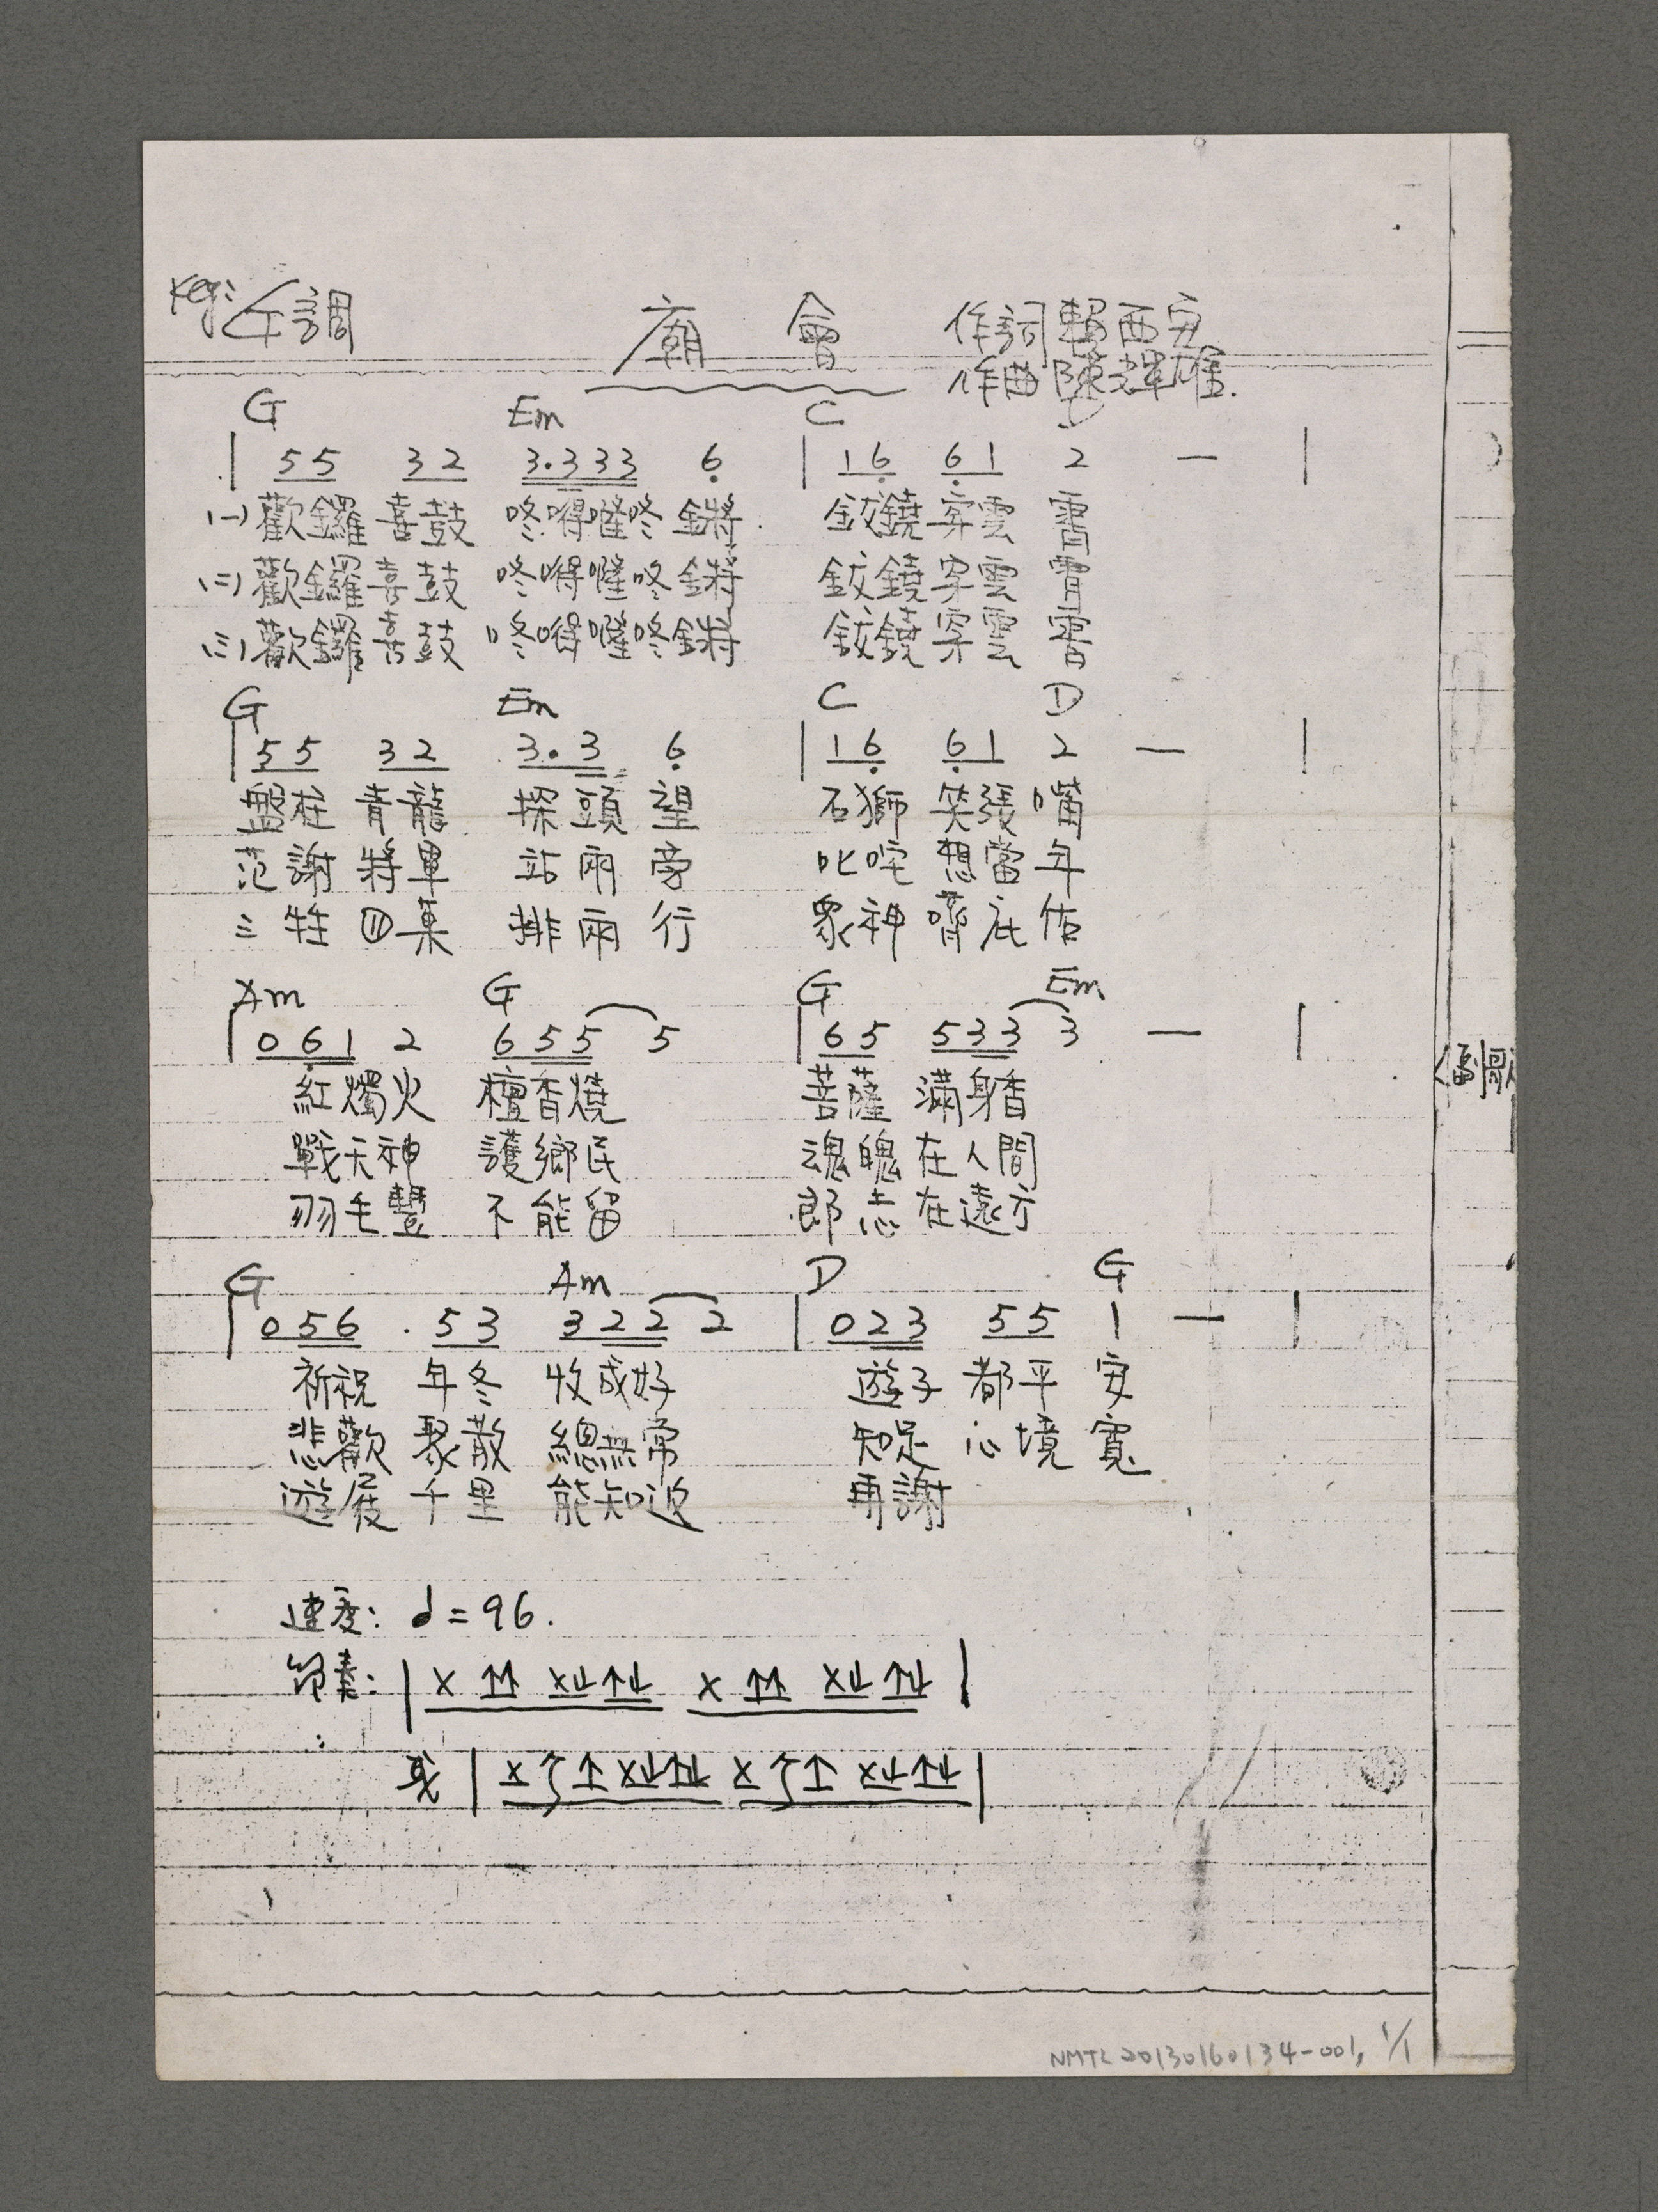 Key: G調 廟會 作詞 賴西安
作曲 陳輝雄.
G Em C D
| 55 32 3.333 6 | 16 61 2 — |
(一) 歡鑼喜鼓 咚嘚嚨咚鏘 鈸鐃穿雲霄
(二) 歡鑼喜鼓 咚嘚嚨咚鏘 鈸鐃穿雲霄
(三) 歡鑼喜鼓 咚嘚嚨咚鏘 鈸鐃穿雲霄
G Em C D
| 55 32 3.3 6 | 16 61 2 — |
盤柱青龍 探頭望 石獅笑張嘴
范謝將軍 站兩旁 叱咤想當年
三牲四菓 排兩行 眾神嚌庇佑
Am G G Em
| 061 2 655 5 | 65 533 3 — |
紅燭火 檀香燒 菩薩滿身香
戰天神 護鄉民 魂魄在人間
羽毛豐 不能留 郎志在遠方
G Am D G
| 056 . 53 322 2 | 023 55 1 — |
祈祝年冬 收成好 遊子都平安
悲歡聚散 總無常 知足心境寬
遊展千里 能知返 再謝
速度: ♩=96.
節奏: | X ↑↑ X↓↑↓ X ↑↑ X↓ ↑↓ |
或 | X ↑ X↓↑↓ X ↑ X↓↑↓ |
副歌
NMTL 20130160134-001, 1/1